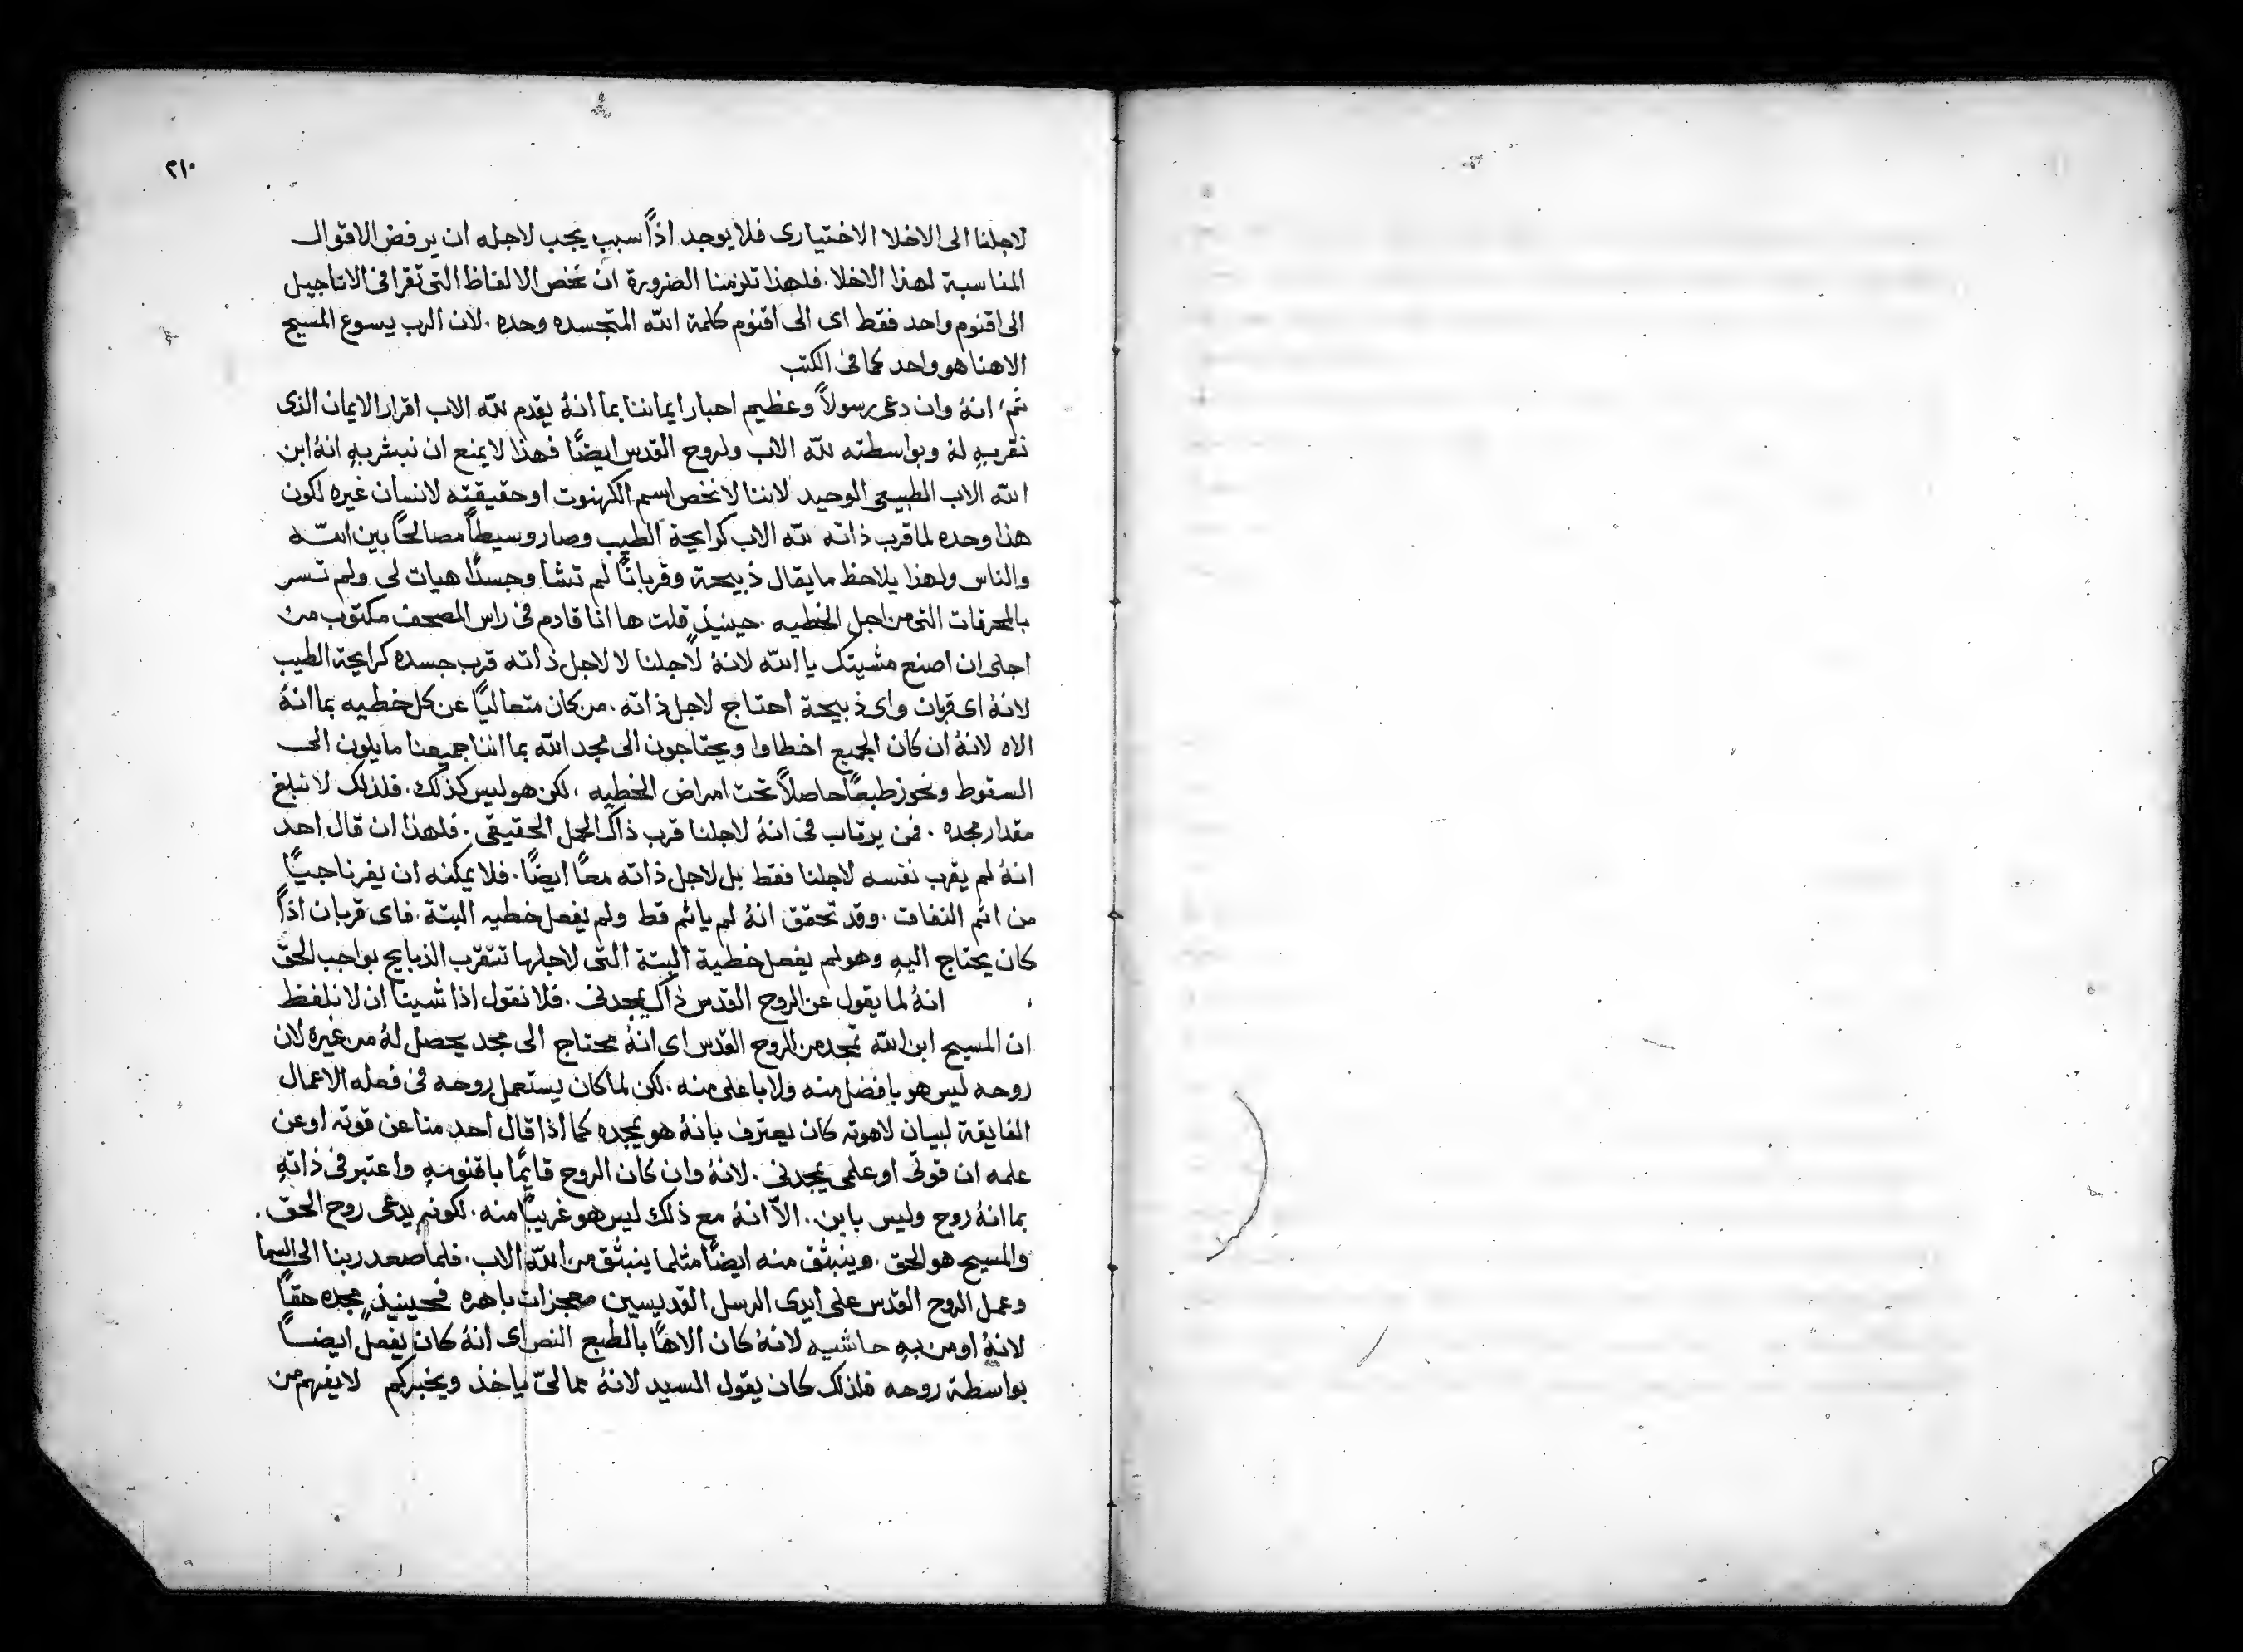 ٢١٠
لاجلنا الى الاخلا الاختيارى فلا يوجد اذًا سبب يجب لاجله ان يرفض الاقوال
المناسبة لهذا الاخلا . فلهذا تلزمنا الضرورة ان نخص الالفاظ التى تقرا فى الاناجيل
الى اقنوم واحد فقط اى الى اقنوم كلمة الله المتجسده وحده . لان الرب يسوع المسيح
الاهنا هو واحد كما فى الكتب
ثم انهُ وان دعى رسولاً وعظيم احبار ايماننا بما انهُ يقدم لله الاب اقرار الايمان الذى
نقر بهِ لهُ وبواسطته لله الاب ولروح القدس ايضًا فهذا لا يمنع ان نبشر بهِ انهُ ابن
الله الاب الطبيعى الوحيد لاننا لا نخص اسم الكهنوت او حقيقته لانسان غيره لكون
هذا وحده لما قرب ذاته لله الاب كرايحة الطيب وصار وسيطًا مصالحًا بين الله
والناس ولهذا يلاحظ ما يقال ذبيحة وقربانًا لم تشا وجسدًا هيات لى ولم تسر
بالمحرقات التى من اجل الخطيه . حينيذٍ قلت ها انا قادم فى راس المصحف مكتوب من
اجلى ان اصنع مشيتك يا الله لانهُ لاجلنا لا لاجل ذاته قرب جسده كرايحة الطيب
لانهُ اى قربان واى ذبيحة احتاج لاجل ذاته . من كان متعاليًا عن كل خطيه بما انهُ
الاه لانهُ ان كان الجميع اخطاوا ويحتاجون الى مجد الله بما اننا جميعنا مايلون الى
السقوط ونحوز طبعًا حاصلاً تحت امراض الخطيه . لكن هو ليس كذلك . فلذلك لا نبلغ
مقدار مجده . فمن يرتاب فى انهُ لاجلنا قرب ذاك الحمل الحقيقى . فلهذا ان قال احد
انهُ لم يقرب نفسه لاجلنا فقط بل لاجل ذاته معًا ايضًا . فلا يمكنه ان يفر ناجيًا
من اثم النفاق . وقد تحقق انهُ لم ياثم قط ولم يفعل خطيه البتة . فاى قربان اذًا
كان يحتاج اليهِ وهو لم يفعل خطية البتة التى لاجلها تتقرب الذبايح بواجب الحق
انهُ لما يقول عن الروح القدس ذاك يمجدنى . فلا نقول اذا شينا ان لا نلفظ
ان المسيح ابن الله تمجد من الروح القدس اى انهُ محتاج الى مجد يحصل لهُ من غيره لان
روحه ليس هو بافضل منه ولا باعلى منه . لكن لما كان يستعمل روحه فى فعله الاعمال
الفايقة لبيان لاهوته كان يعترف بانهُ هو يمجده كما اذا قال احد منا عن قوته او عن
علمه ان قوتى او علمى يمجدنى . لانهُ وان كان الروح قايمًا باقنومهِ واعتبر فى ذاتهِ
بما انهُ روح وليس بابن .. الاّ انهُ مع ذلك ليس هو غريبًا منه . لكونهِ يدعى روح الحق .
والمسيح هو الحق . وينبثق منه ايضًا مثلما ينبثق من الله الاب . فلما صعد ربنا الى السما
وعمل الروح القدس على ايدى الرسل القديسين معجزات باهره فحينيذٍ مجده حقًا
لانهُ اومن بهِ حاشيه لانهُ كان الاهًا بالطبع النص اى انهُ كان يفعل ايضًا
بواسطة روحه فلذلك كان يقول السيد لانهُ مما لىّ ياخذ ويخبركم لا يفهم من